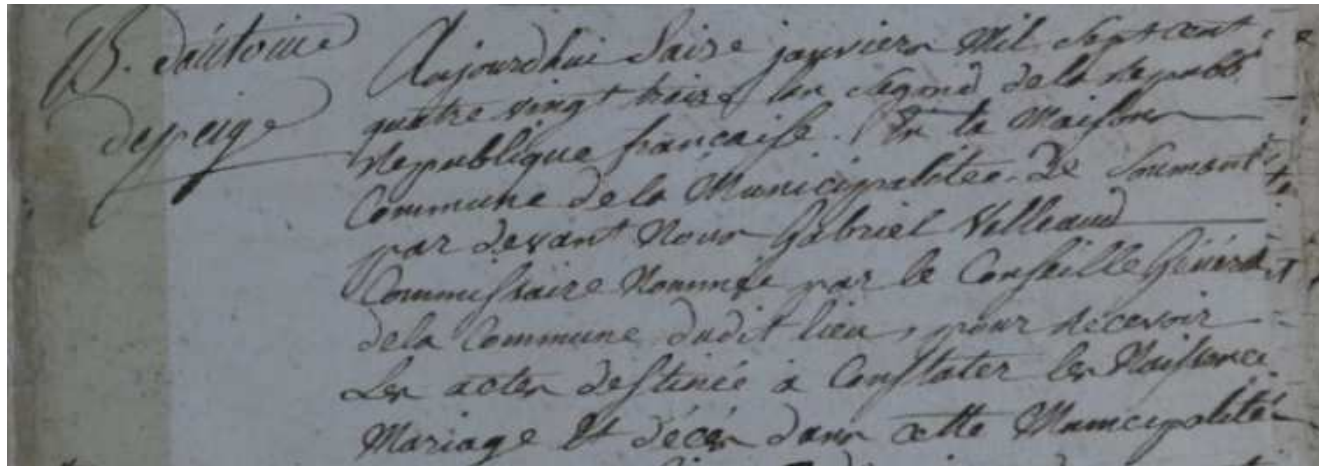 B. d'antoine
depeige
Aujourdhui Saize janvier Mil Sept cent
quatre vingt traize lan segond de la Repub
Republique francaise. En la Maison
Commune de la Municipalitee De Soumont
par devant Nous Gabriel Valleaud
Commissaire Nommée par le Conseille Général
dela Commune dudit lieu, pour recevoir
Les actes destinée a Constater les Naissence
Mariage Et décés dans cette Municipalitée